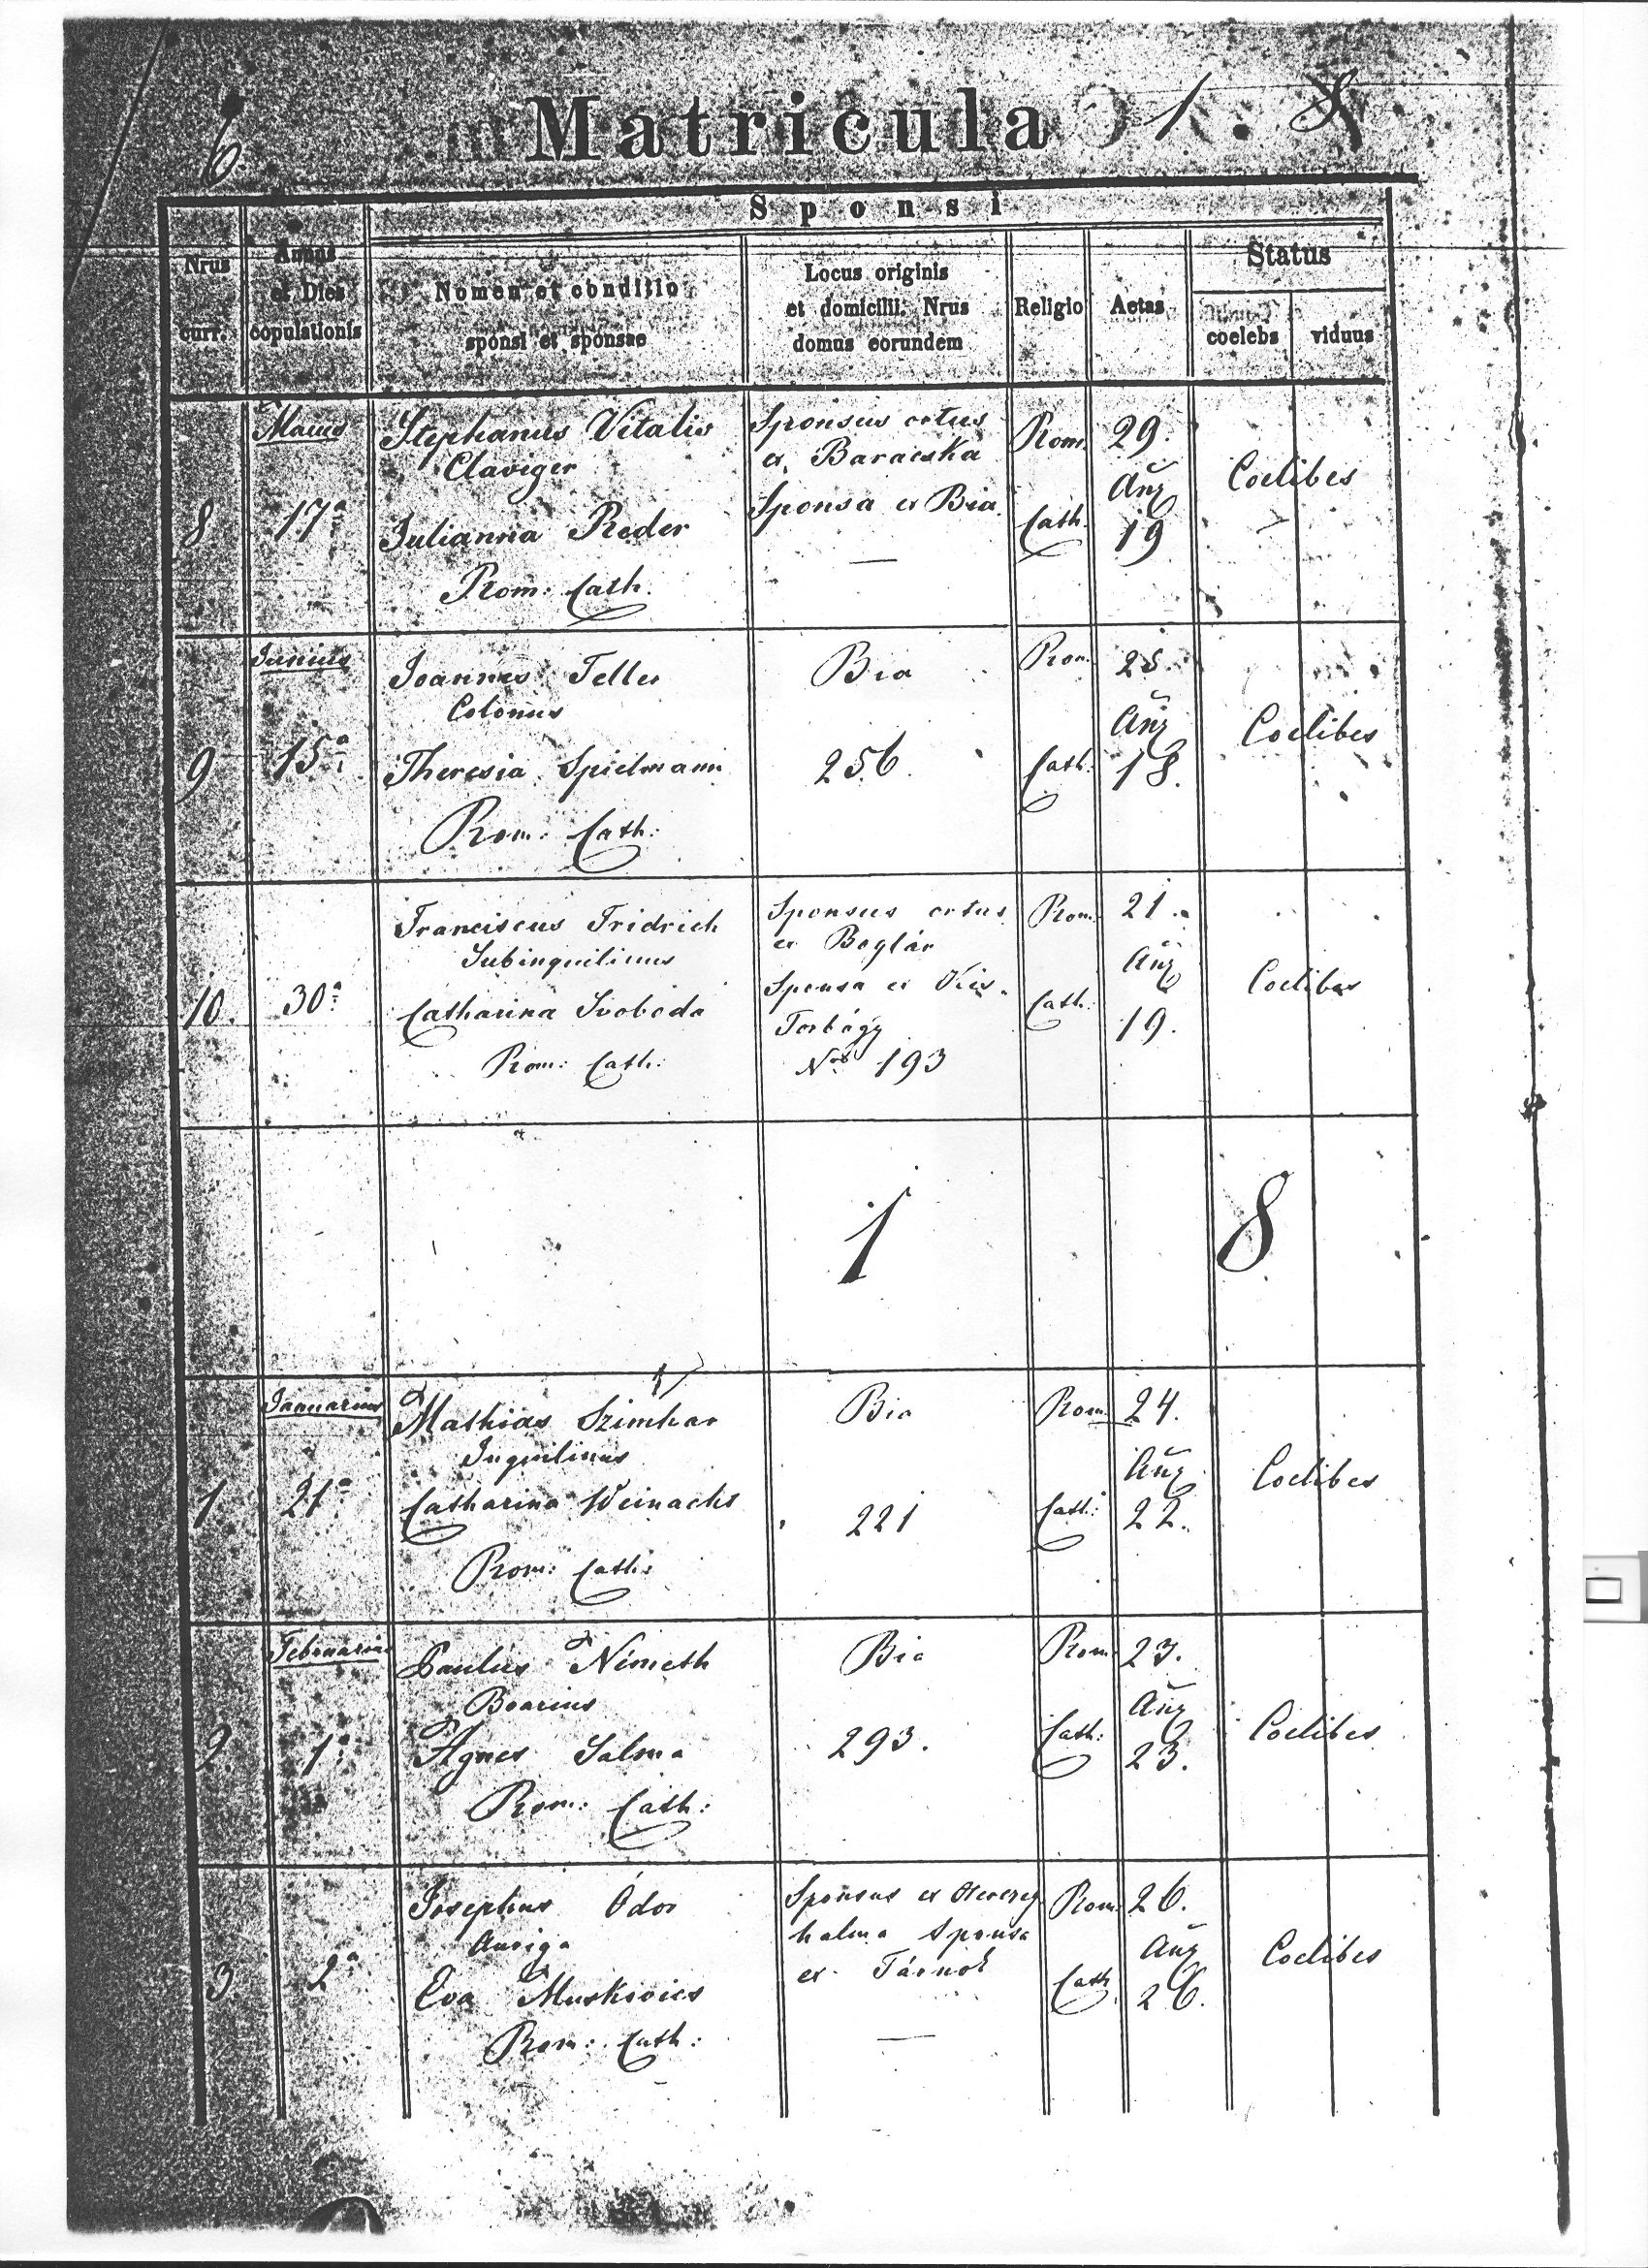 6.
Matricula 1. 8
Sponsi
Nrus curr.
Annus et Dies copulationis
Nomen et conditio sponsi et sponsae
Locus originis et domicilii. Nrus domus eorundem
Religio
Aetas
Status
coelebs
viduus
Maius
8
17a
Stephanus Vitalis
Claviger
Julianna Reder
Rom: Cath.
Sponsus ortus
ex Baracska
Sponsa ex Bia
Rom.
Cath.
29.
Añ
19
Coelibes
Junius
9
15a
Joannes Teller
Colonus
Theresia Spielmann
Rom: Cath:
Bia
256.
Rom.
Cath:
25.
Añ
18.
Coelibes
10.
30a
Franciscus Fridrich
Subinquilinus
Catharina Svoboda
Rom: Cath:
Sponsus ortus
ex Boglár
Sponsa ex Kis-
Torbágy
Nro 193
Rom.
Cath:
21.
Añ
19.
Coelibes
1 8
Januarius
1
21a
Mathias Szimhar
Inquilinus
Catharina Weinachs
Rom: Cath:
Bia
221
Rom.
Cath:
24.
Añ
22.
Coelibes
Februarius
2
1a
Paulus Németh
Boarius
Agnes Salma
Rom: Cath:
Bia
293.
Rom.
Cath:
23.
Añ
23.
Coelibes
3
2a
Josephus Ódor
Auriga
Eva Muskovics
Rom: Cath:
Sponsus ex
halma Sponsa
ex Tárnok
Rom.
Cath.
26.
Añ
26.
Coelibes